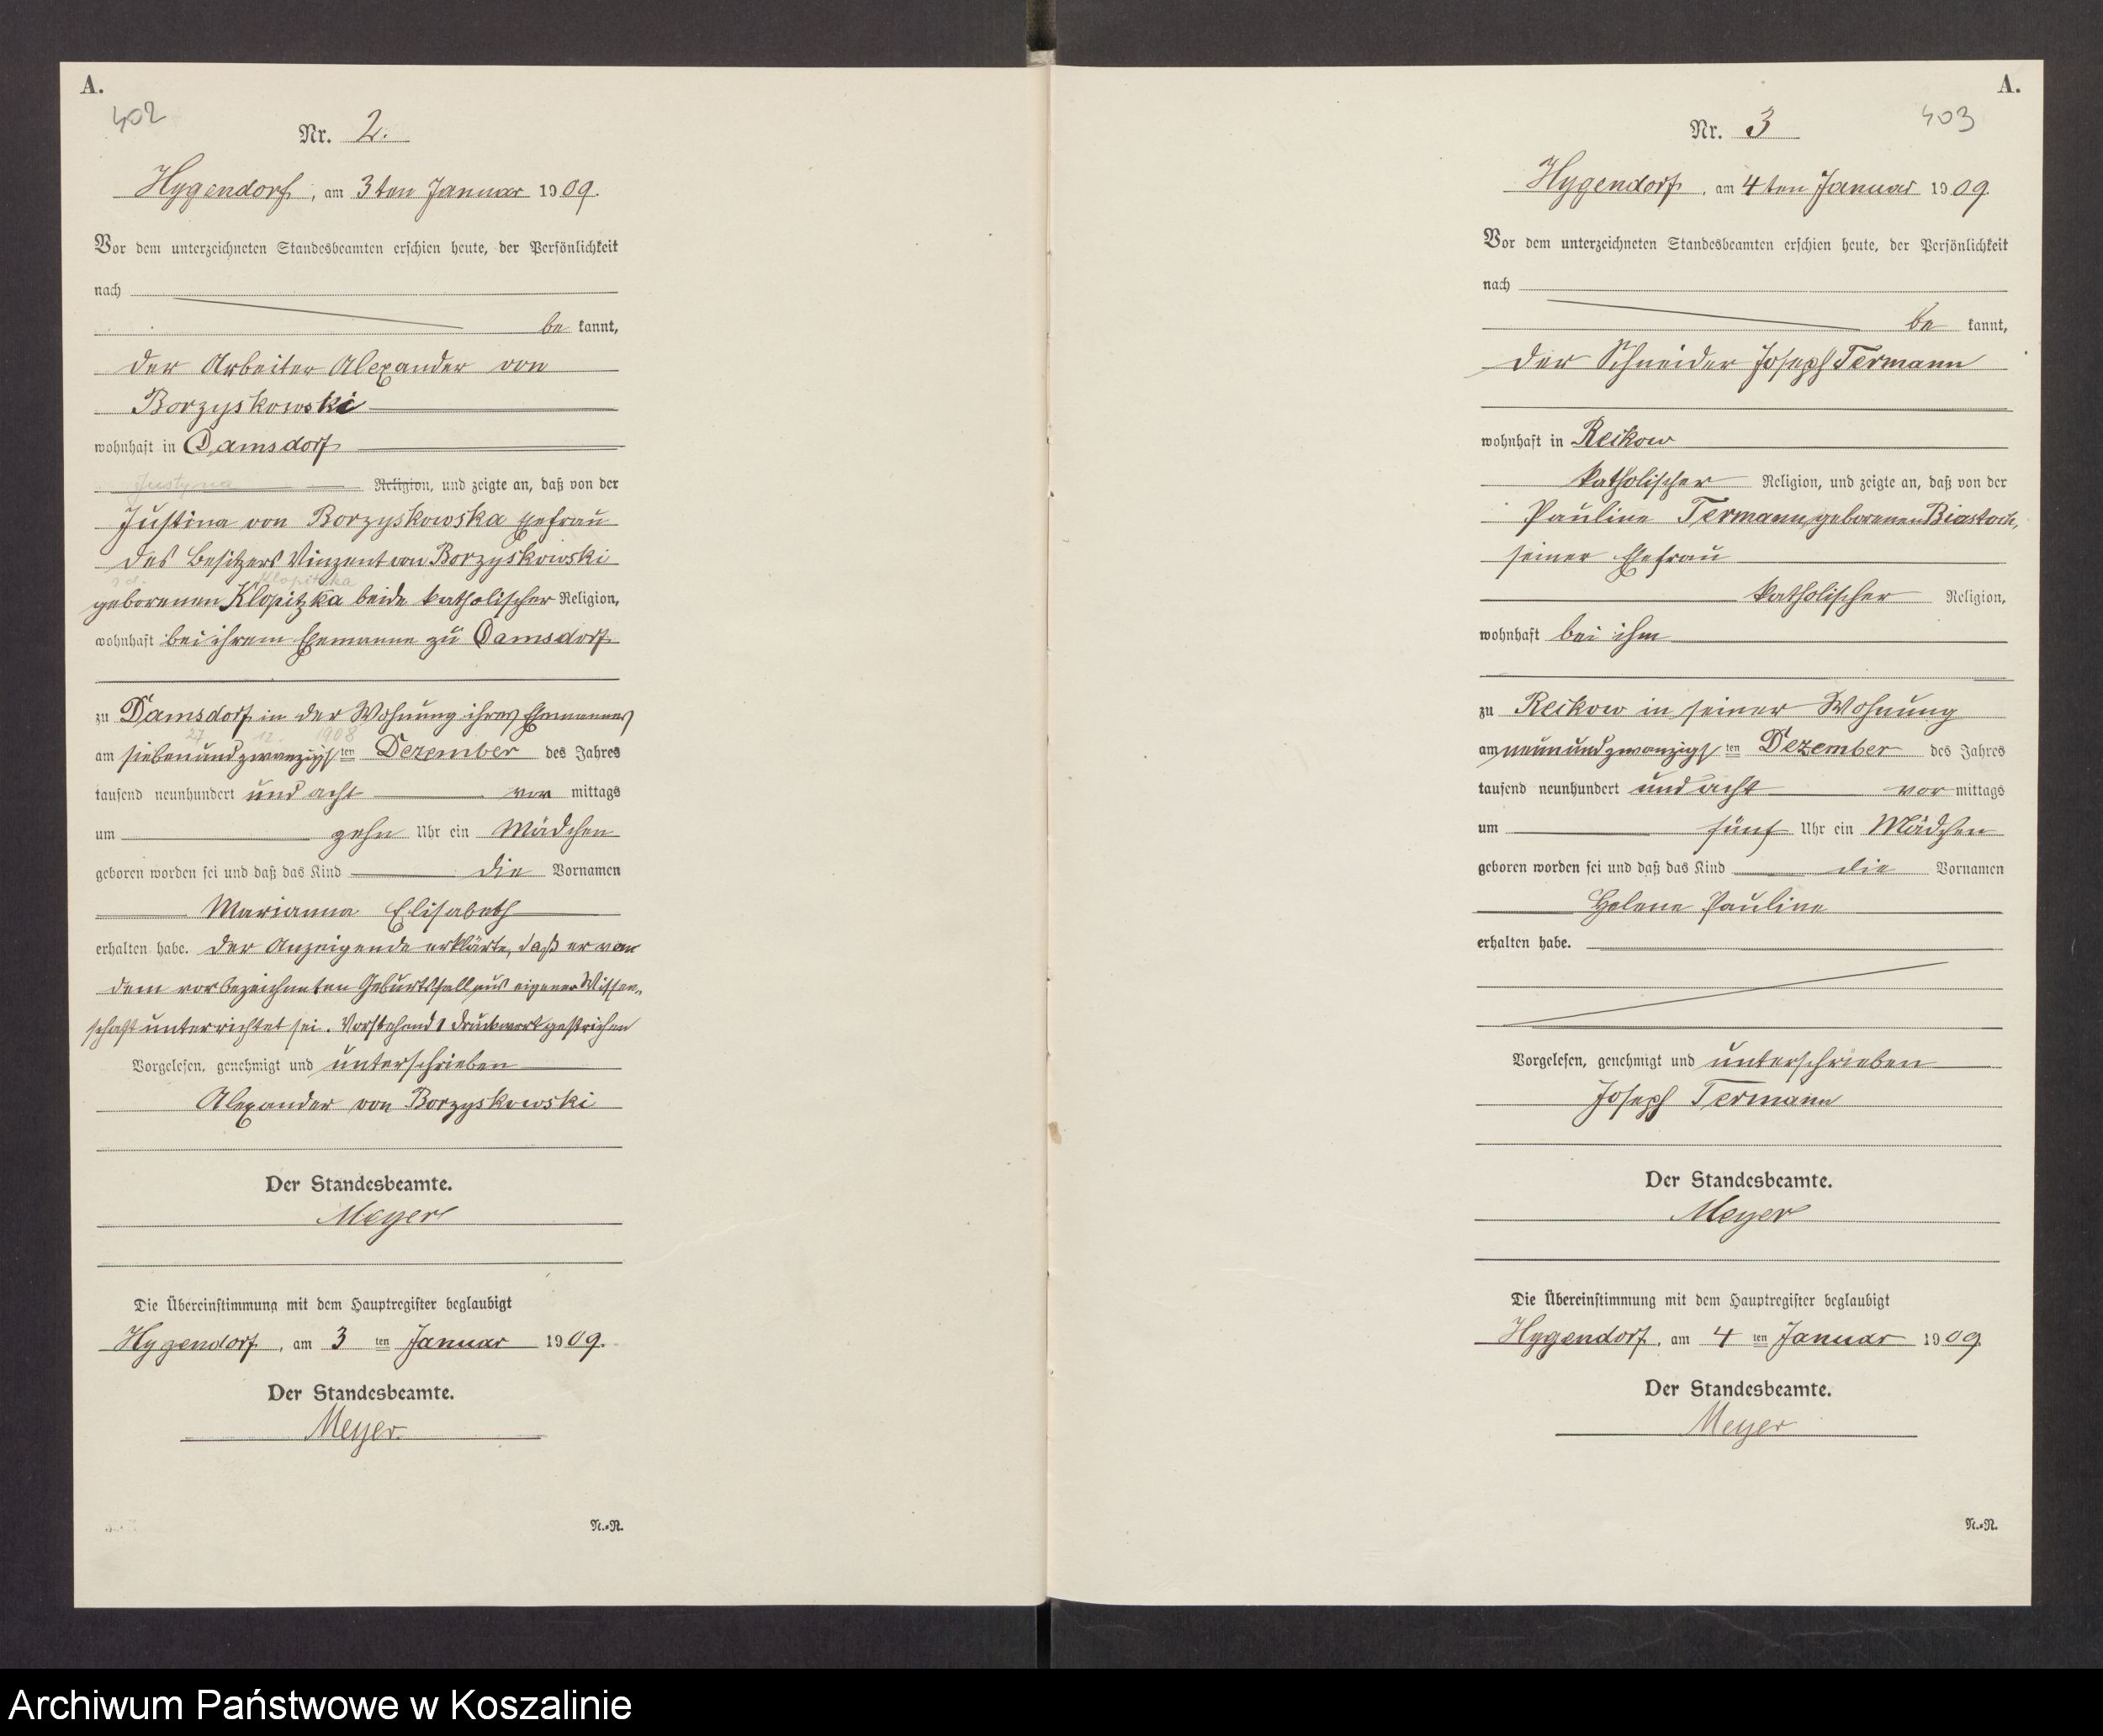 A.
402
Nr. 2.
Hygendorf, am 3ten Januar 1909.
Vor dem unterzeichneten Standesbeamten erschien heute, der Persönlichkeit
nach
be kannt,
der Arbeiter Alexander von
Borzyskowski
wohnhaft in Damsdorf
Justyna
Religion, und zeigte an, daß von der
Justina von Borzyskowska Ehefrau
des Besitzers Vinzent von Borzyskowski
Klopitzka
geborenen Klopitzka beide katholischer Religion,
wohnhaft bei ihrem Ehemanne zu Damsdorf
zu Damsdorf in der Wohnung ihres Ehemannes
27 12. 1908
am siebenundzwanzigsten Dezember des Jahres
tausend neunhundert und acht vor mittags
um zehn Uhr ein Mädchen
geboren worden sei und daß das Kind die Vornamen
Marianna Elisabeth
erhalten habe. Der Anzeigende erklärte, daß er von
dem vorbezeichneten Geburtsfall aus eigener Wissen-
schaft unterrichtet sei. Vorstehend 1 Druckwort gestrichen
Vorgelesen, genehmigt und unterschrieben
Alexander von Borzyskowski
Der Standesbeamte.
Meyer
Die Übereinstimmung mit dem Hauptregister beglaubigt
Hygendorf, am 3 ten Januar 1909.
Der Standesbeamte.
Meyer.
N.-R.
A.
403
Nr. 3
Hygendorf, am 4ten Januar 1909.
Vor dem unterzeichneten Standesbeamten erschien heute, der Persönlichkeit
nach
be kannt,
der Schneider Joseph Termann
wohnhaft in Reikow
katholischer Religion, und zeigte an, daß von der
Pauline Termann, geborenen Biastoch,
seiner Ehefrau
katholischer Religion,
wohnhaft bei ihm
zu Reikow in seiner Wohnung
am neunundzwanzigsten Dezember des Jahres
tausend neunhundert und acht vor mittags
um fünf Uhr ein Mädchen
geboren worden sei und daß das Kind die Vornamen
Helene Pauline
erhalten habe.
Vorgelesen, genehmigt und unterschrieben
Joseph Termann
Der Standesbeamte.
Meyer
Die Übereinstimmung mit dem Hauptregister beglaubigt
Hygendorf, am 4 ten Januar 1909
Der Standesbeamte.
Meyer
N.-R.
Archiwum Państwowe w Koszalinie